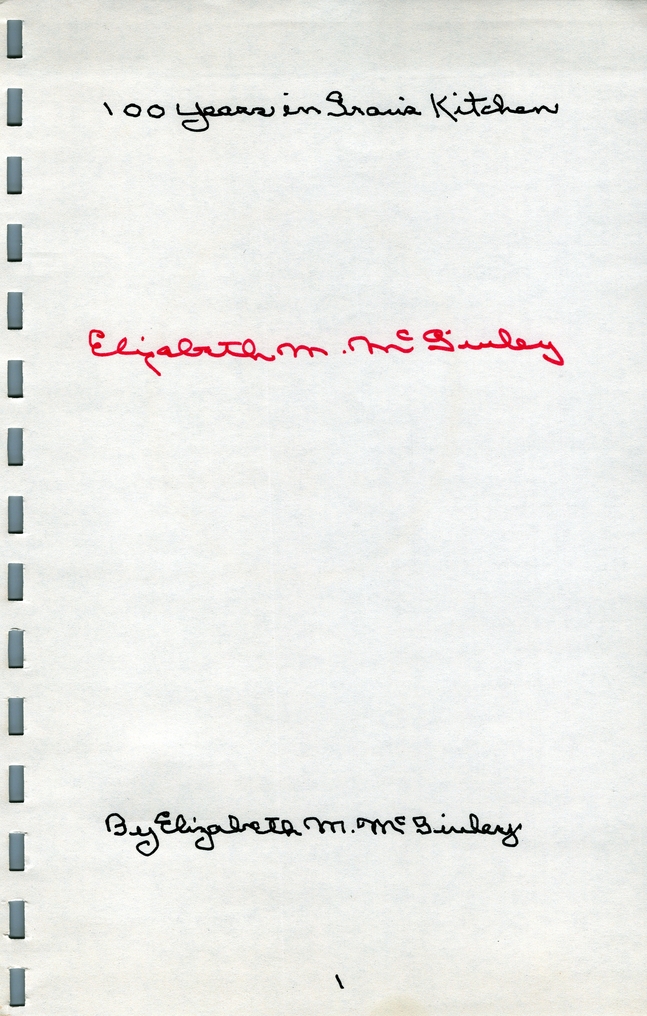 100 years in Gran's Kitchen
Elizabeth M. McGinley
By Elizabeth M. McGinley
1